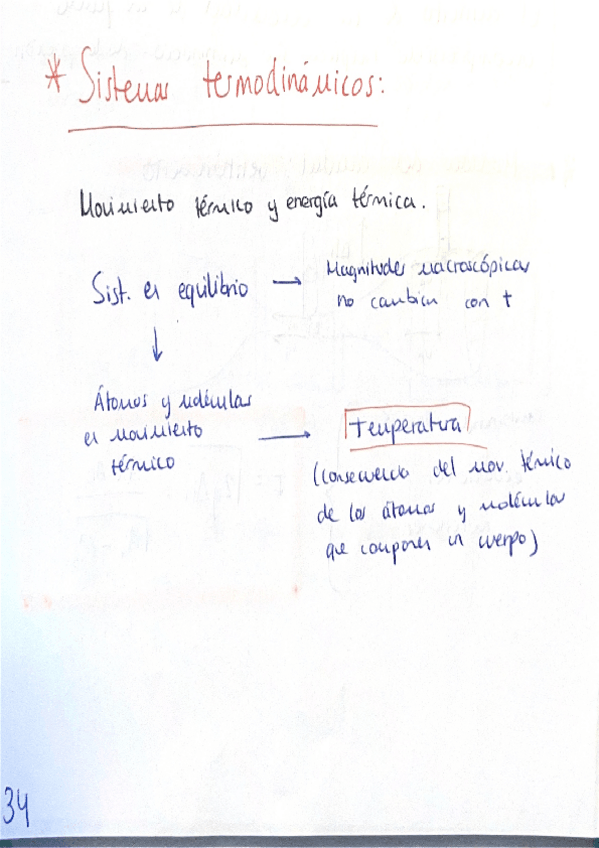 * Sistemas termodinámicos:
Movimiento térmico y energía térmica.
Sist. en equilibrio → Magnitudes macroscópicas
no cambian con t
↓
Átomos y moléculas
en movimiento
térmico
→ Temperatura
(consecuencia del mov. térmico
de los átomos y moléculas
que componen un cuerpo)
34